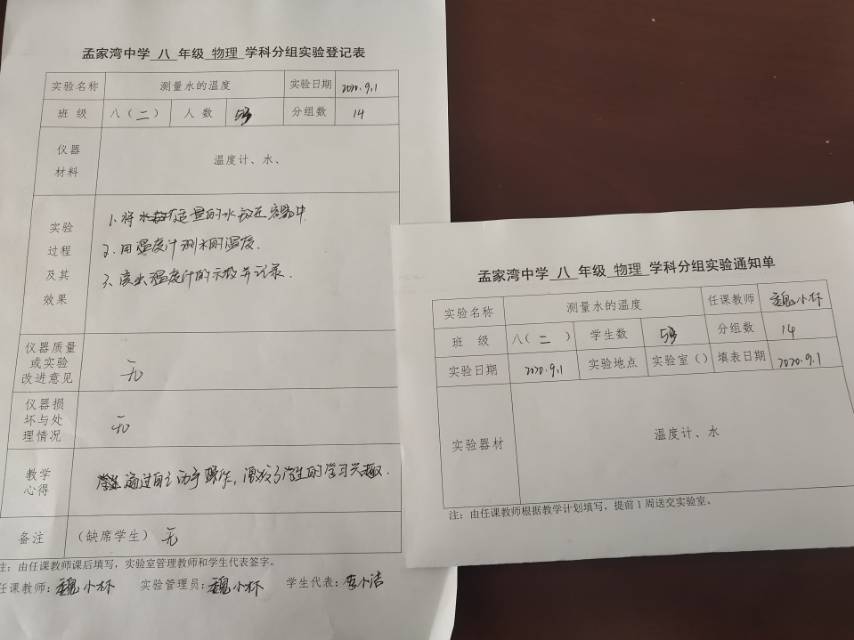 孟家湾中学 八 年级 物理 学科分组实验登记表
实验名称 测量水的温度 实验日期 2020.9.1
班 级 八（二） 人 数 53 分组数 14
仪器
材料
温度计、水、
实验
过程
及其
效果
1、将 定量的水 容器中
2、用温度计测水的温度.
3、读出温度计的示数并记录.
仪器质量
或实验
改进意见
无
仪器损
坏与处
理情况
无
教学
心得
通过自主动手操作，激发了学生的学习兴趣.
备注 （缺席学生）无
注：由任课教师课后填写，实验室管理教师和学生代表签字。
任课教师：魏小林 实验管理员：魏小林 学生代表：李小洁
孟家湾中学 八 年级 物理 学科分组实验通知单
实验名称 测量水的温度 任课教师 魏小林
班 级 八（二） 学生数 53 分组数 14
实验日期 2020.9.1 实验地点 实验室（） 填表日期 2020.9.1
实验器材 温度计、水
注：由任课教师根据教学计划填写，提前1周送交实验室。